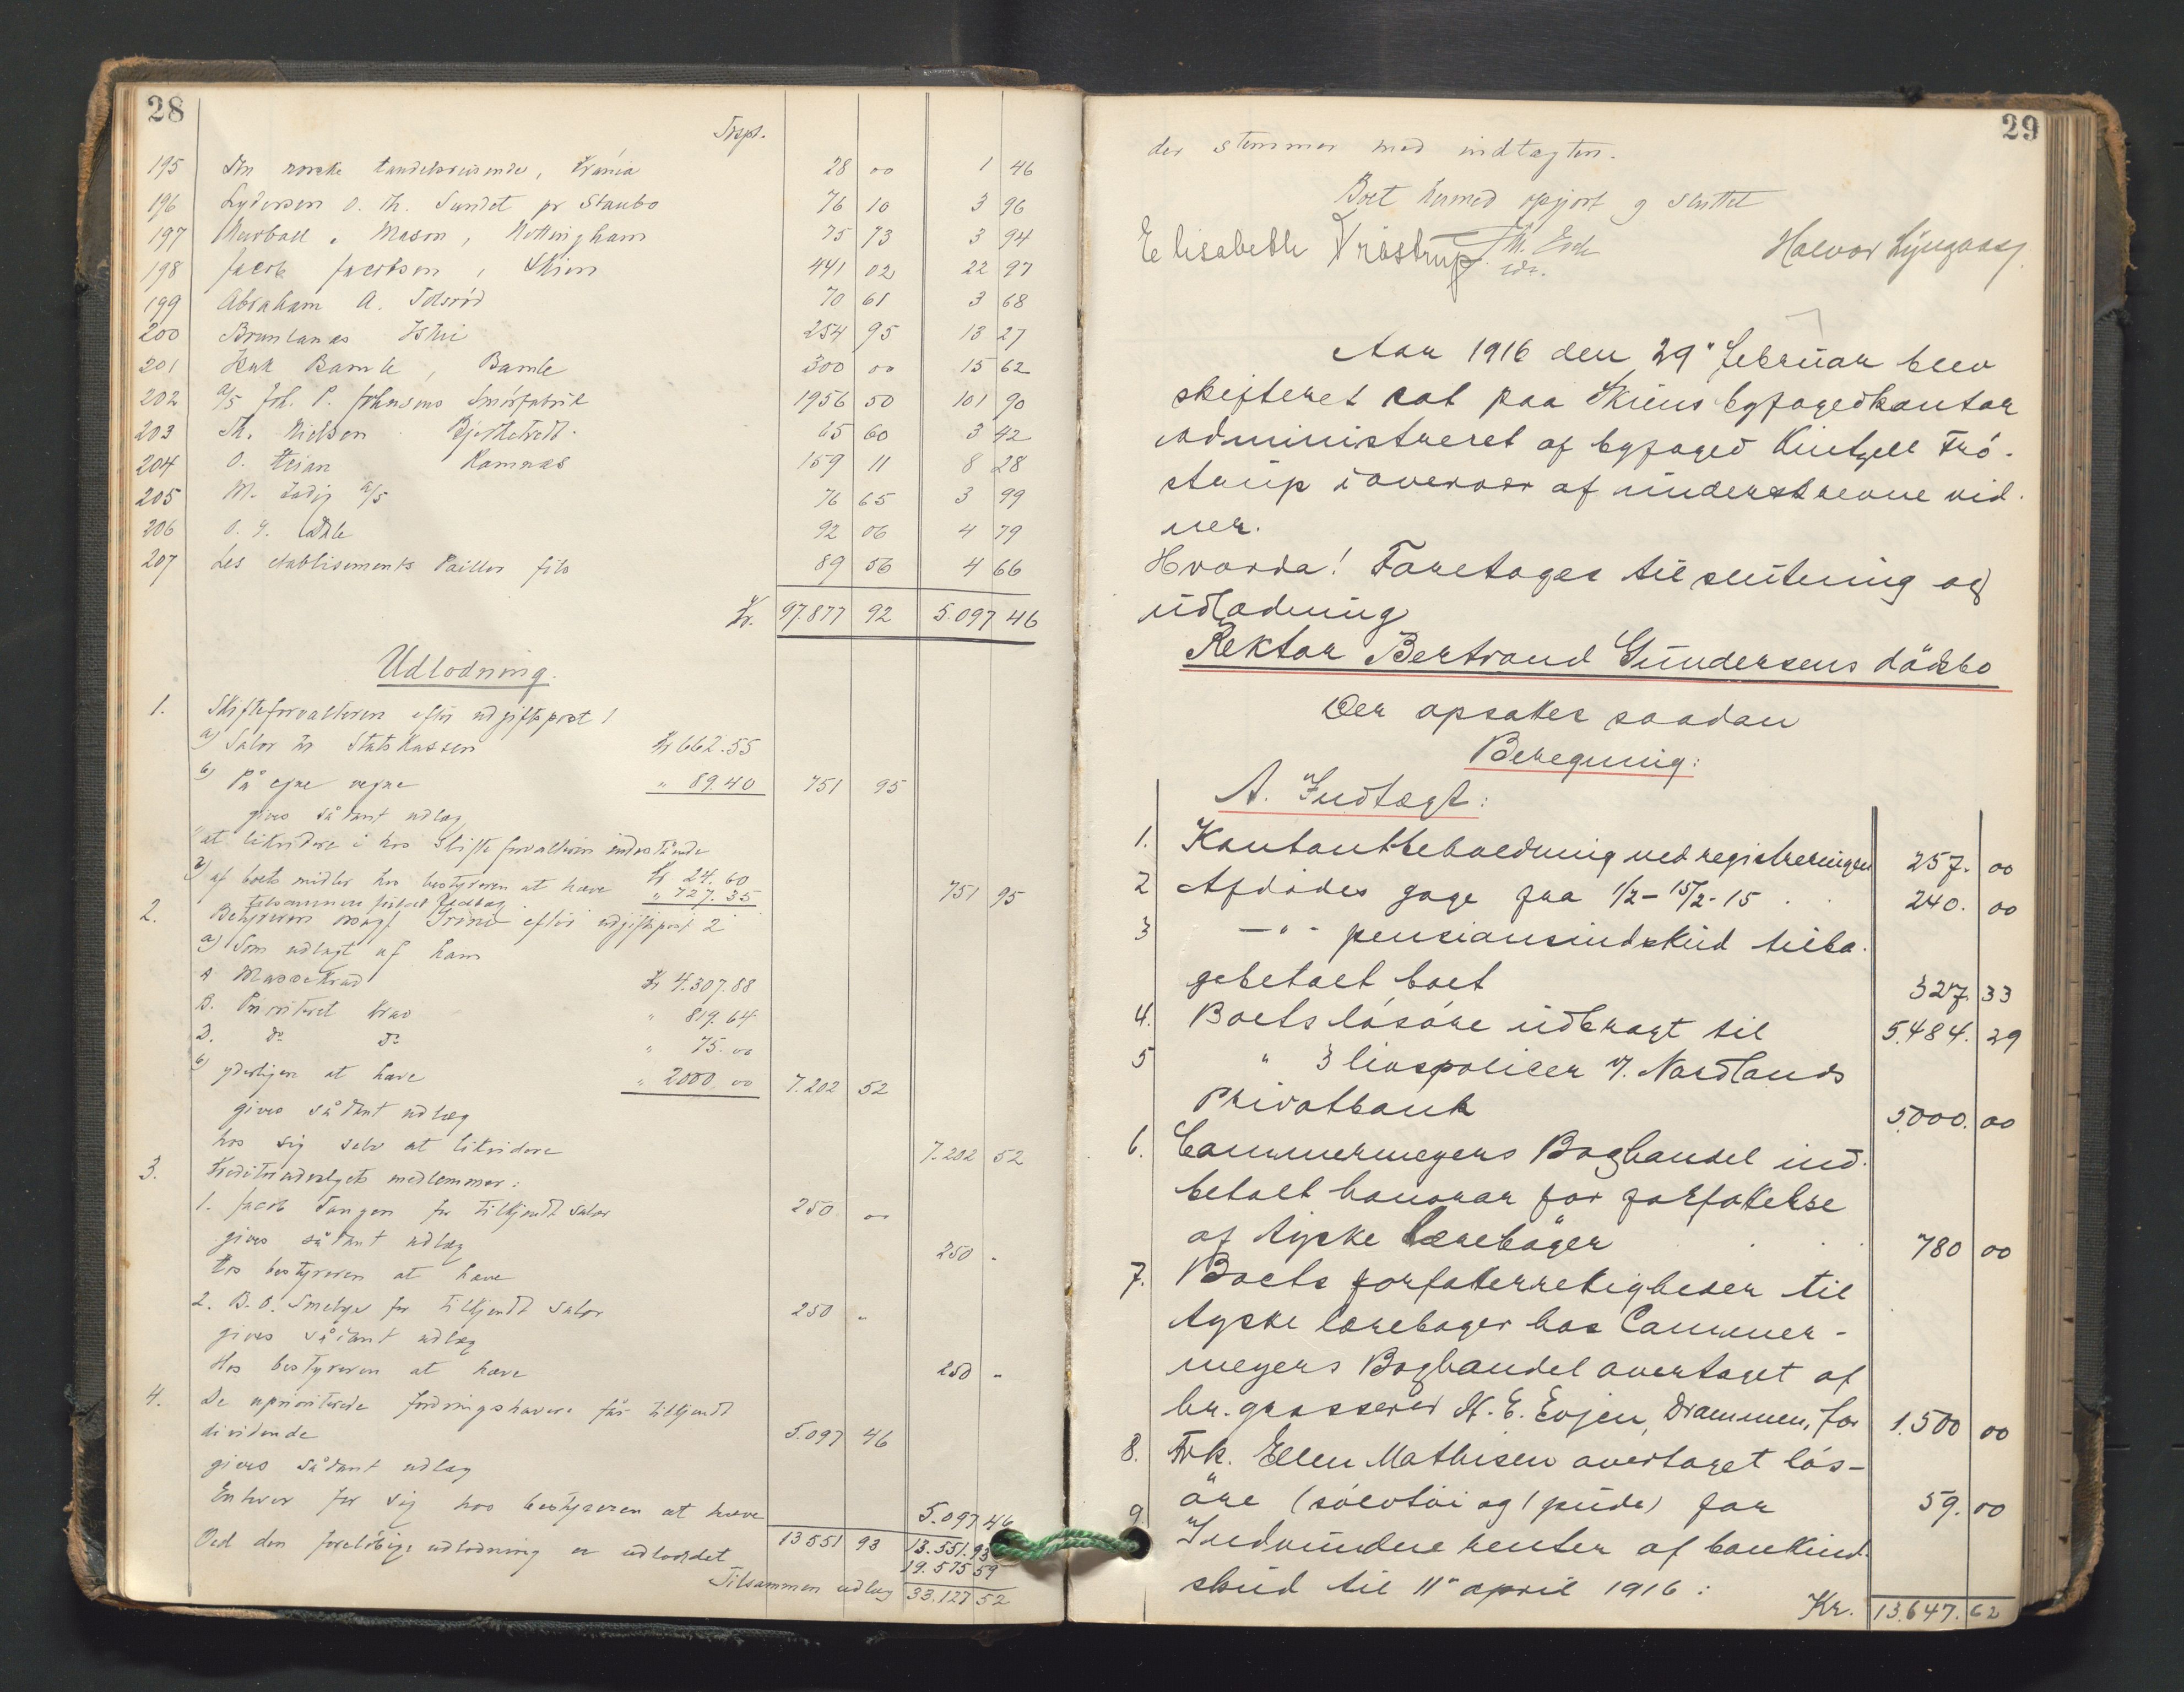 28
Trspt.
195 Den norske Handelsreisende, Krania 28 00 1 46
196 Lydersen O. Th. Sundet pr Staubo 76 10 3 96
197 & Mason, Nottingham 75 73 3 94
198 Jacob Jacobsen, Skien 441 02 22 97
199 Abraham A. Tolsrød 70 61 3 68
200 Brunlanas Ysteri 254 95 13 27
201 Bamle, Bamle 300 00 15 62
202 A/S Joh. P. Johnsens Smörfabrik 1956 50 101 90
203 Th. Nielsen 65 60 3 42
204 O. Heian Ramnæs 159 11 8 28
205 M. Zadig A/S 76 65 3 99
206 O. G. 92 06 4 79
207 Les etablisements Pailler fils 89 56 4 66
Kr. 97.877 92 5.097 46
Udlodning.
1. Skifteforvalteren efter udgiftspost 1
a) Salær til Statskassen Kr 662.55
b) På egne vegne " 89.40 751 95
gives sådant udlæg
1) at likvidere i hos Skifteforvalteren indestående Kr. 24.60
2) af boets midler hos bestyreren at hæve " 727.35 751 95
tilsammen sidst Udlæg
2. Bestyreren efter udgiftspost 2
a) Som udlagt af ham
A Massekrav Kr 4.307.88
B. Prioriteret krav " 819.64
D. do do " 75.00
b) yderligere at hæve " 2000.00 7.202 52
gives sådant udlæg
hos sig selv at likvidere 7.202 52
3. Kreditorudvalgets medlemmer:
1. Jacob Tangen for tilkjendt salær 250 00
gives sådant udlæg
Hos bestyreren at hæve 250 -
2. B. O. Smebye for tilkjendt salær 250 -
gives sådant udlæg
Hos bestyreren at hæve 250 -
4. De uprioriterede fordringshavere får tilkjendt
dividende 5.097 46
gives sådant udlæg
Enhver for sig hos bestyreren at hæve 5.097 46
13551 93 13.551.93
Ved den foreløbige udlodning er udloddet 19.575 59
Tilsammen udlæg 33.127 52
29
der stemmer med indtægten.
Boet hermed opgjort og sluttet
Elisabeth Tröstrup Halvor Lyngaas
Aar 1916 den 29' februar blev
skifteret sat paa Skiens byfogedkontor
administreret af byfoged Kintzell Frö-
strup i overvær af underskrevne vid-
ner.
Hvorda! Foretoges til slutning og
udlodning
Rektor Bertrand Gundersens dödsbo
Der opsattes saadan
Beregning:
A. Indtægt:
1. Kontantbeholdning ved registreringen 257. 00
2 Afdödes gage fra 1/2 - 15/2 - 15 240. 00
3 - " - pensionsindskud tilba-
gebetalt boet 327. 33
4. Boets lösöre udbragt til 5.484. 29
5 " 3 livspolicer v. Nordlands
Privatbank 5000. 00
6. Cammermeyers Boghandel ind-
betalt honorar for forfattelse
af tyske lærebøger 780 00
7. Boets forfatterrettigheder til
tyske lærebøger hos Cammer-
meyers Boghandel overtaget af
hr. grosserer H. E. Evjen, Drammen, for 1.500 00
8. Frk. Ellen Mathisen overtaget lös-
öre (sølvtöi og 1 pude) for 59. 00
9 Indvundne renter af bankind-
skud til 11" april 1916:
Kr. 13.647. 62